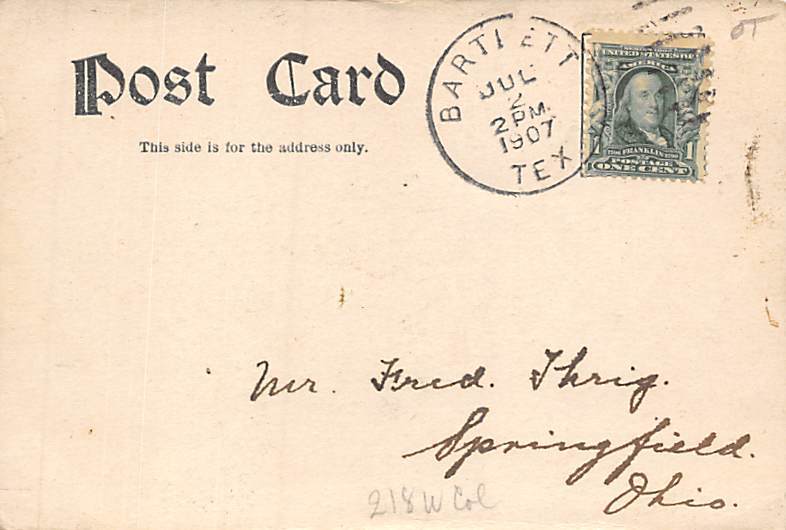 Post Card
This side is for the address only.
BARTLETT
JUL
2
2 PM.
1907
TEX
UNITED STATES OF
AMERICA
FRANKLIN
1 POSTAGE 1
ONE CENT
Mr. Fred. Ihrig.
Springfield.
Ohio.
218 W Col